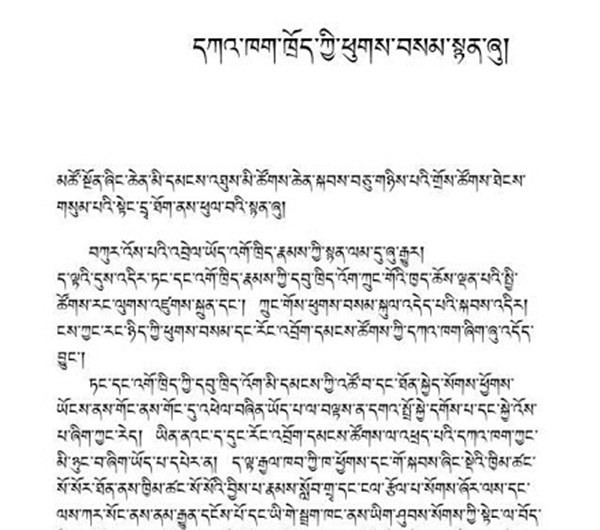 དཀའ་ཁག་ཁྲོད་ཀྱི་ཕུགས་བསམ་སྙན་ཞུ།
མཚོ་སྔོན་ཞིང་ཆེན་མི་དམངས་འཐུས་མི་ཚོགས་ཆེན་སྐབས་བཅུ་གཉིས་པའི་གྲོས་ཚོགས་ཐེངས་
གསུམ་པའི་སྟེང་དྲྭ་ཐོག་ནས་ཕུལ་བའི་སྙན་ཞུ།
བཀུར་འོས་པའི་འབྲེལ་ཡོད་འགོ་ཁྲིད་རྣམས་ཀྱི་སྙན་ལམ་དུ་ཞུ་རྒྱུར།
ད་ལྟའི་དུས་འདིར་ཏང་དང་འགོ་ཁྲིད་རྣམས་ཀྱི་དབུ་ཁྲིད་འོག་ཀྲུང་གོའི་ཁྱད་ཆོས་ལྡན་པའི་སྤྱི་
ཚོགས་རང་ལུགས་འཛུགས་སྐྲུན་དང་། ཀྲུང་གོས་ཕུགས་བསམ་སྐུལ་འདེད་པའི་སྐབས་འདིར།
ངས་ཀྱང་རང་ཉིད་ཀྱི་ཕུགས་བསམ་དང་རོང་འབྲོག་དམངས་ཚོགས་ཀྱི་དཀའ་ཁག་ཞིག་ཞུ་འདོད་
བྱུང་།
ཏང་དང་འགོ་ཁྲིད་ཀྱི་དབུ་ཁྲིད་འོག་མི་དམངས་ཀྱི་འཚོ་བ་དང་ཐོན་སྐྱེད་སོགས་ཕྱོགས་
ཡོངས་ནས་གོང་ནས་གོང་དུ་འཕེལ་བཞིན་ཡོད་པ་ལ་བལྟས་ན་དགའ་སྤྲོ་སྐྱེ་དགོས་པ་དང་སྐྱེ་འོས་
པ་ཞིག་ཀྱང་རེད། ཡིན་ནའང་ད་དུང་རོང་འབྲོག་དམངས་ཚོགས་ལ་འཕྲད་པའི་དཀའ་ཁག་ཀྱང་
མི་ཉུང་བ་ཞིག་ཡོད་པ་དཔེར་ན། ད་ལྟ་རྒྱལ་ཁབ་ཀྱི་ཁ་ཕྱོགས་དང་གོ་སྐབས་ཞིང་སྡེའི་ཁྱིམ་ཚང་
སོ་སོར་ཐོན་ནས་ཁྱིམ་ཚང་སོ་སོའི་བྱིས་པ་རྣམས་སློབ་གྲྭ་དང་ངལ་རྩོལ་པ་སོགས་ཞོར་ལས་དང་
ལས་ཀར་སོང་ནས་ནམ་རྒྱུན་དངོས་པོ་དང་ཡི་གེ་སྦྲག་ཁང་ནས་ཡིག་ཤུབས་སོགས་ཀྱི་སྟེང་ལ་བོད་